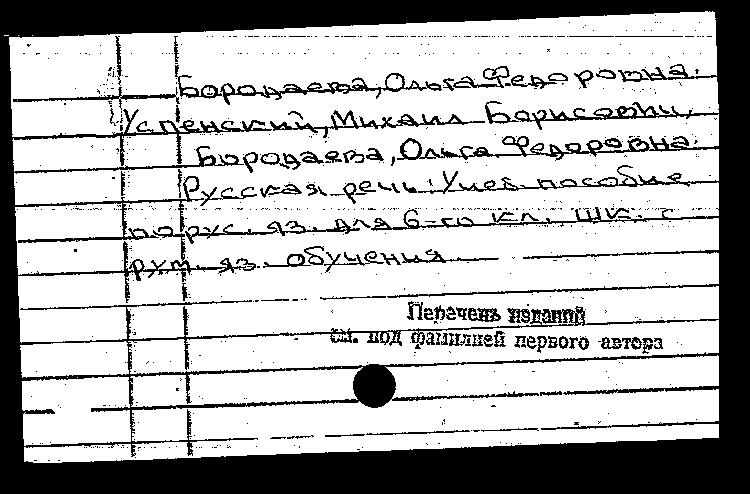 Бородаева, Ольга Федоровна.
Успенский, Михаил Борисович,
Бородаева, Ольга Федоровна.
Русская речь: Учеб. пособие
по рус. яз. для 6-го кл. шк. с
рум. яз. обучения
Перечень изданий
см. под фамилией первого автора